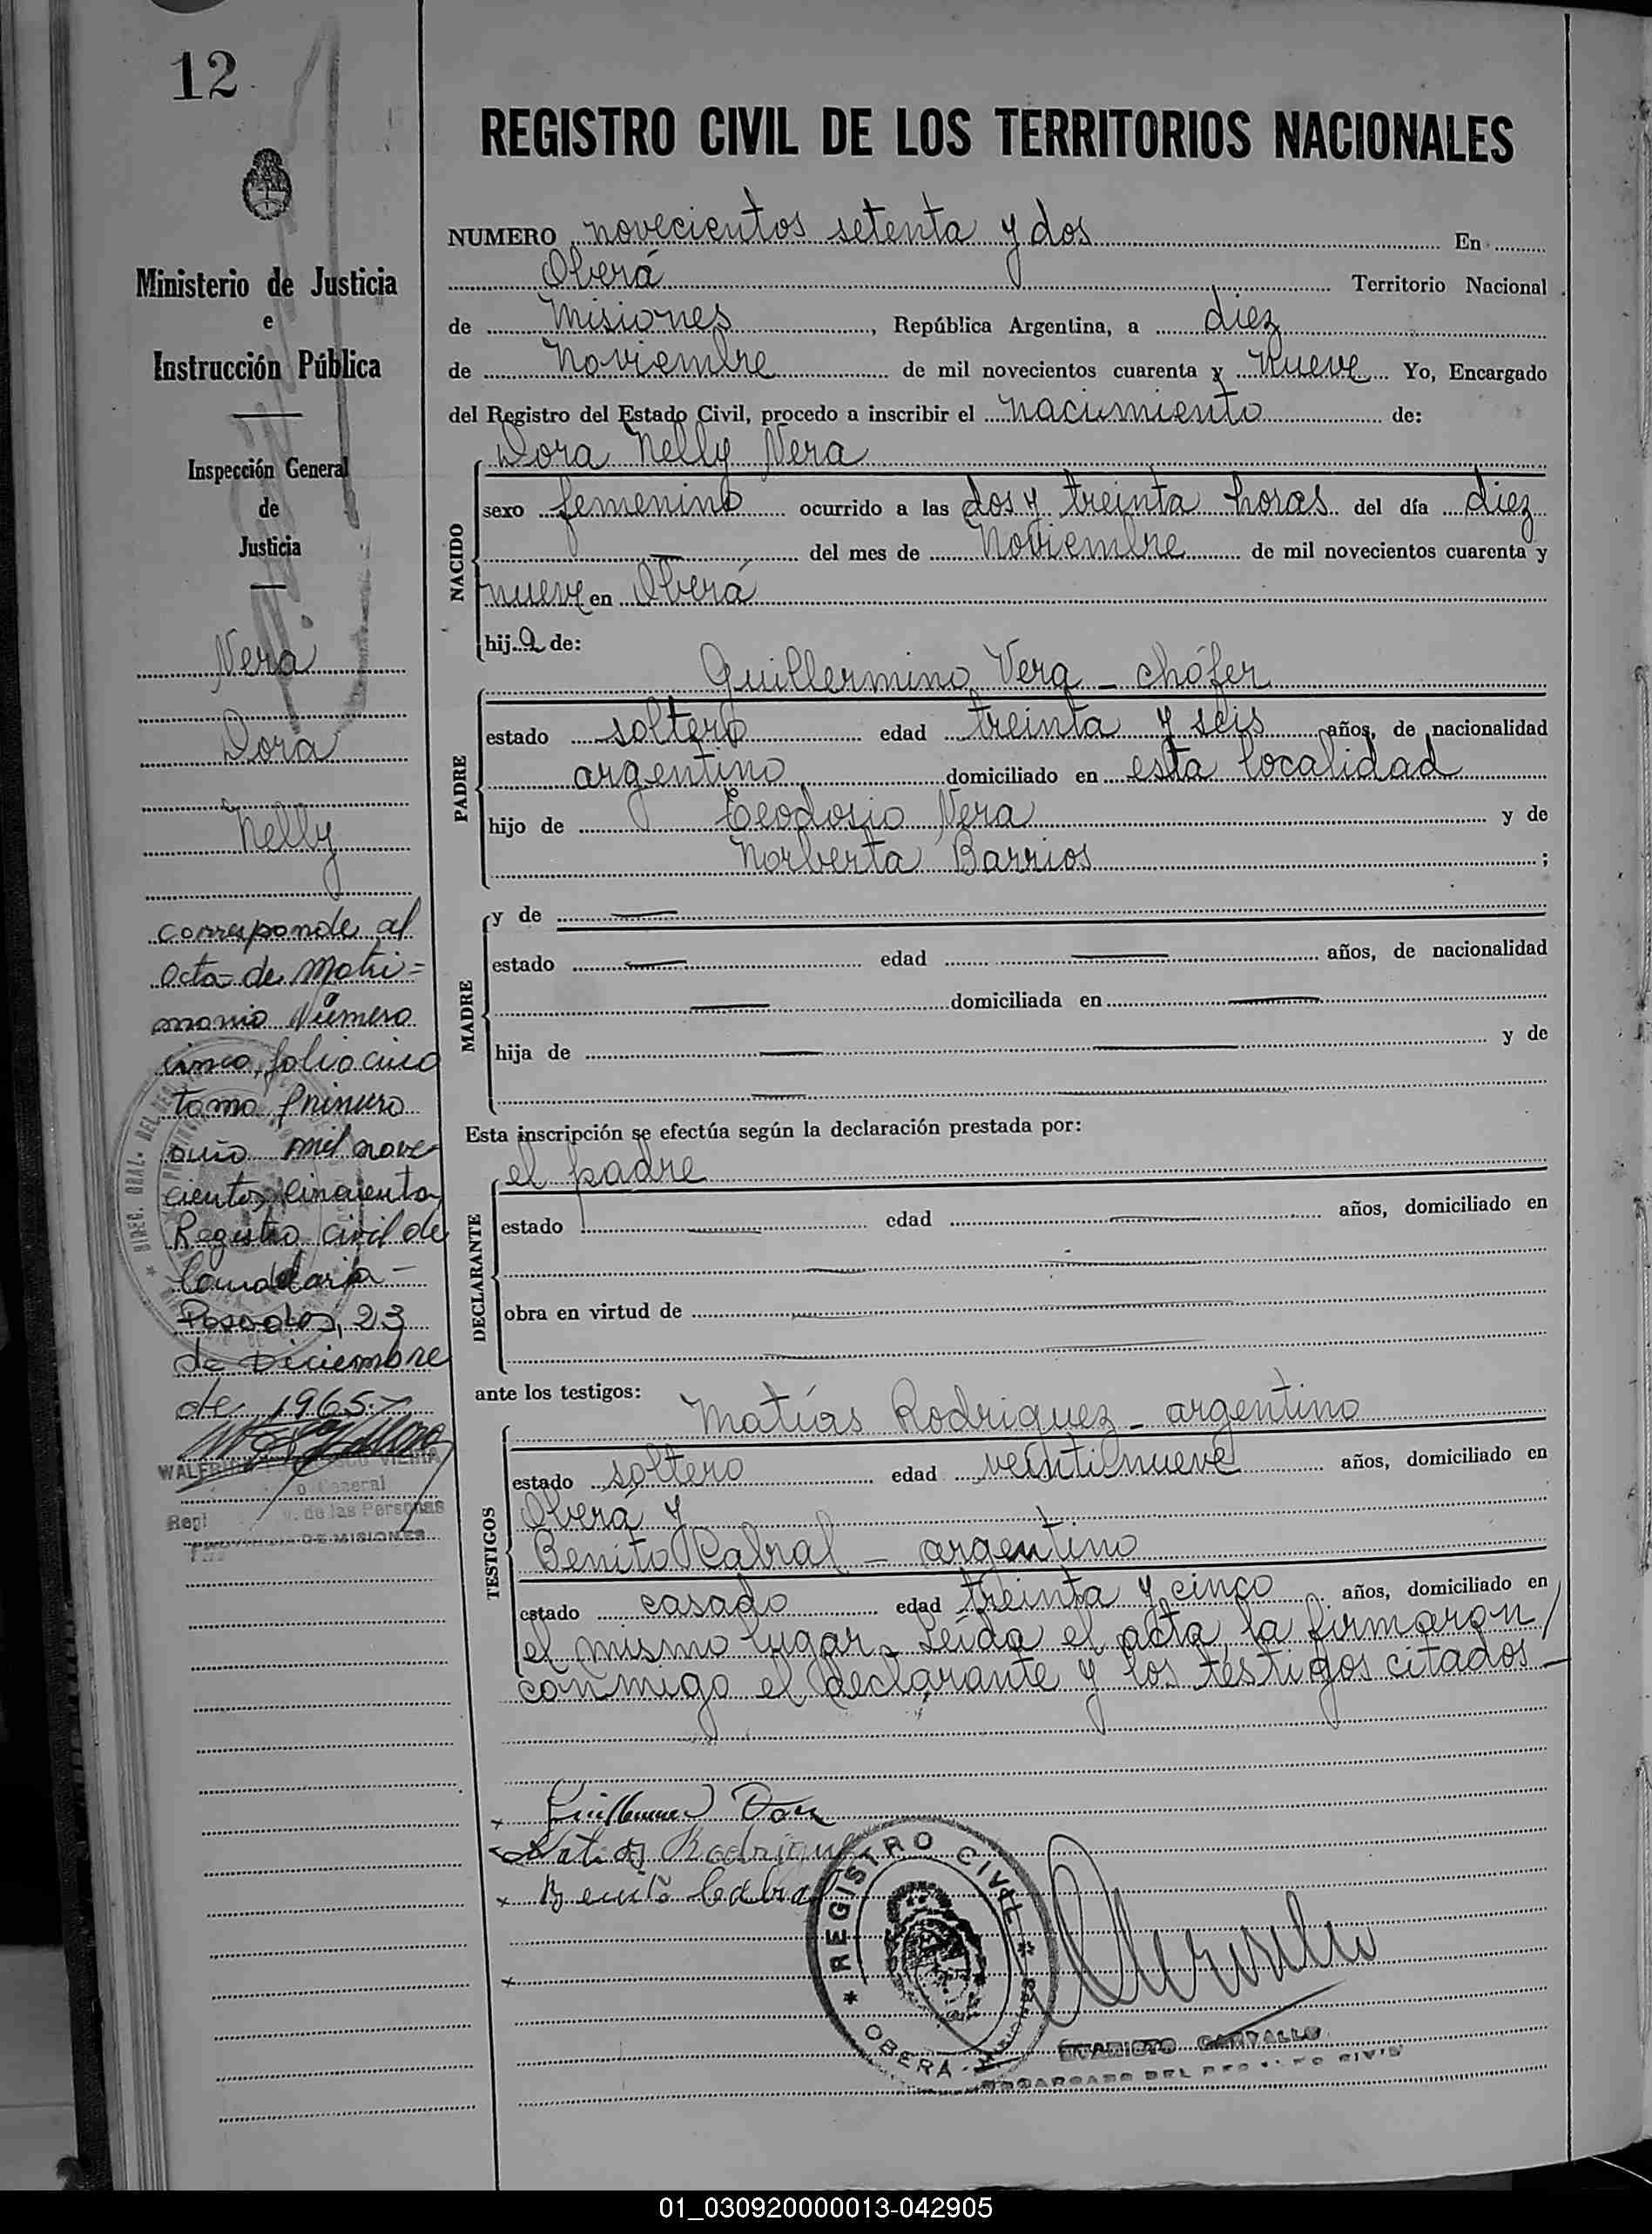 12
Ministerio de Justicia
e
Instrucción Pública
Inspección General
de
Justicia
Nera
Dora
Nelly
corresponde al
acta de matri=
monio Número
cinco, folio cinco
tomo Primero
año mil nove-
cientos cincuenta
Registro civil de
Candelaria -
Posadas, 23
de Diciembre
de 1965.-
General
de las Personas
DE MISIONES
REGISTRO CIVIL DE LOS TERRITORIOS NACIONALES
NUMERO novecientos setenta y dos En
Oberá Territorio Nacional
de Misiones, República Argentina, a diez
de Noviembre de mil novecientos cuarenta y nueve Yo, Encargado
del Registro del Estado Civil, procedo a inscribir el nacimiento de:
Dora Nelly Vera
NACIDO
sexo femenino ocurrido a las dos y treinta horas del día diez
— del mes de Noviembre de mil novecientos cuarenta y
nueve en Oberá
hija de:
PADRE
Guillermino Vera - chófer
estado soltero edad treinta y seis años, de nacionalidad
argentino domiciliado en esta localidad
hijo de Teodosio Vera y de
Norberta Barrios ;
MADRE
y de —
estado — edad — años, de nacionalidad
— domiciliada en —
hija de — — y de
—
Esta inscripción se efectúa según la declaración prestada por:
DECLARANTE
el padre
estado — edad — años, domiciliado en
— —
obra en virtud de —
ante los testigos:
TESTIGOS
Matías Rodriguez - argentino
estado soltero edad veintinueve años, domiciliado en
Oberá y
Benito Cabral - argentino
estado casado edad treinta y cinco años, domiciliado en
el mismo lugar. Leída el acta, la firmaron/
conmigo el declarante y los testigos citados -
Matias Rodriguez
Benito Cabral
REGISTRO CIVIL
OBERA - MISIONES
EVARISTO CARVALLO
ENCARGADO DEL REGISTRO CIVIL
01_030920000013-042905